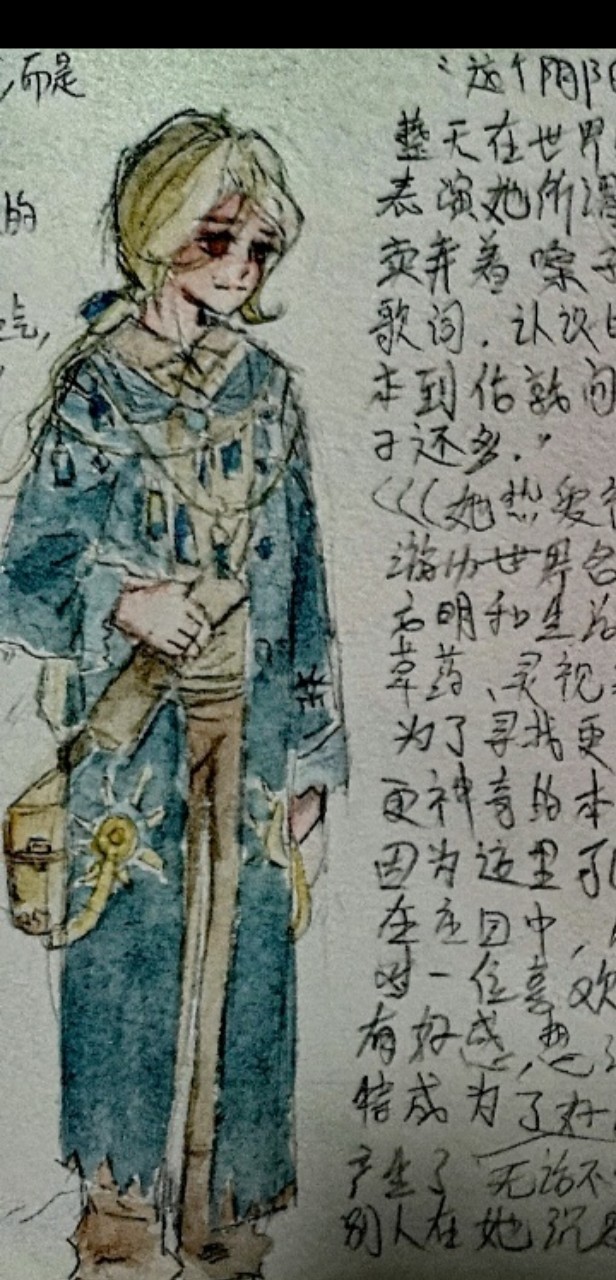 而是
的
气,
“这个阴阳
整天在世界
表演她所谓
卖弄着嗓子
歌词.认识
本到估就问
子还多.”
(((她热爱
游历世界各
文明和生活
草药、灵视
为了寻找更
更神奇的本
因为这里
在庄园中,
对一位喜欢
有好感,想
特成为了好
产生了 无话不
别人在她沉